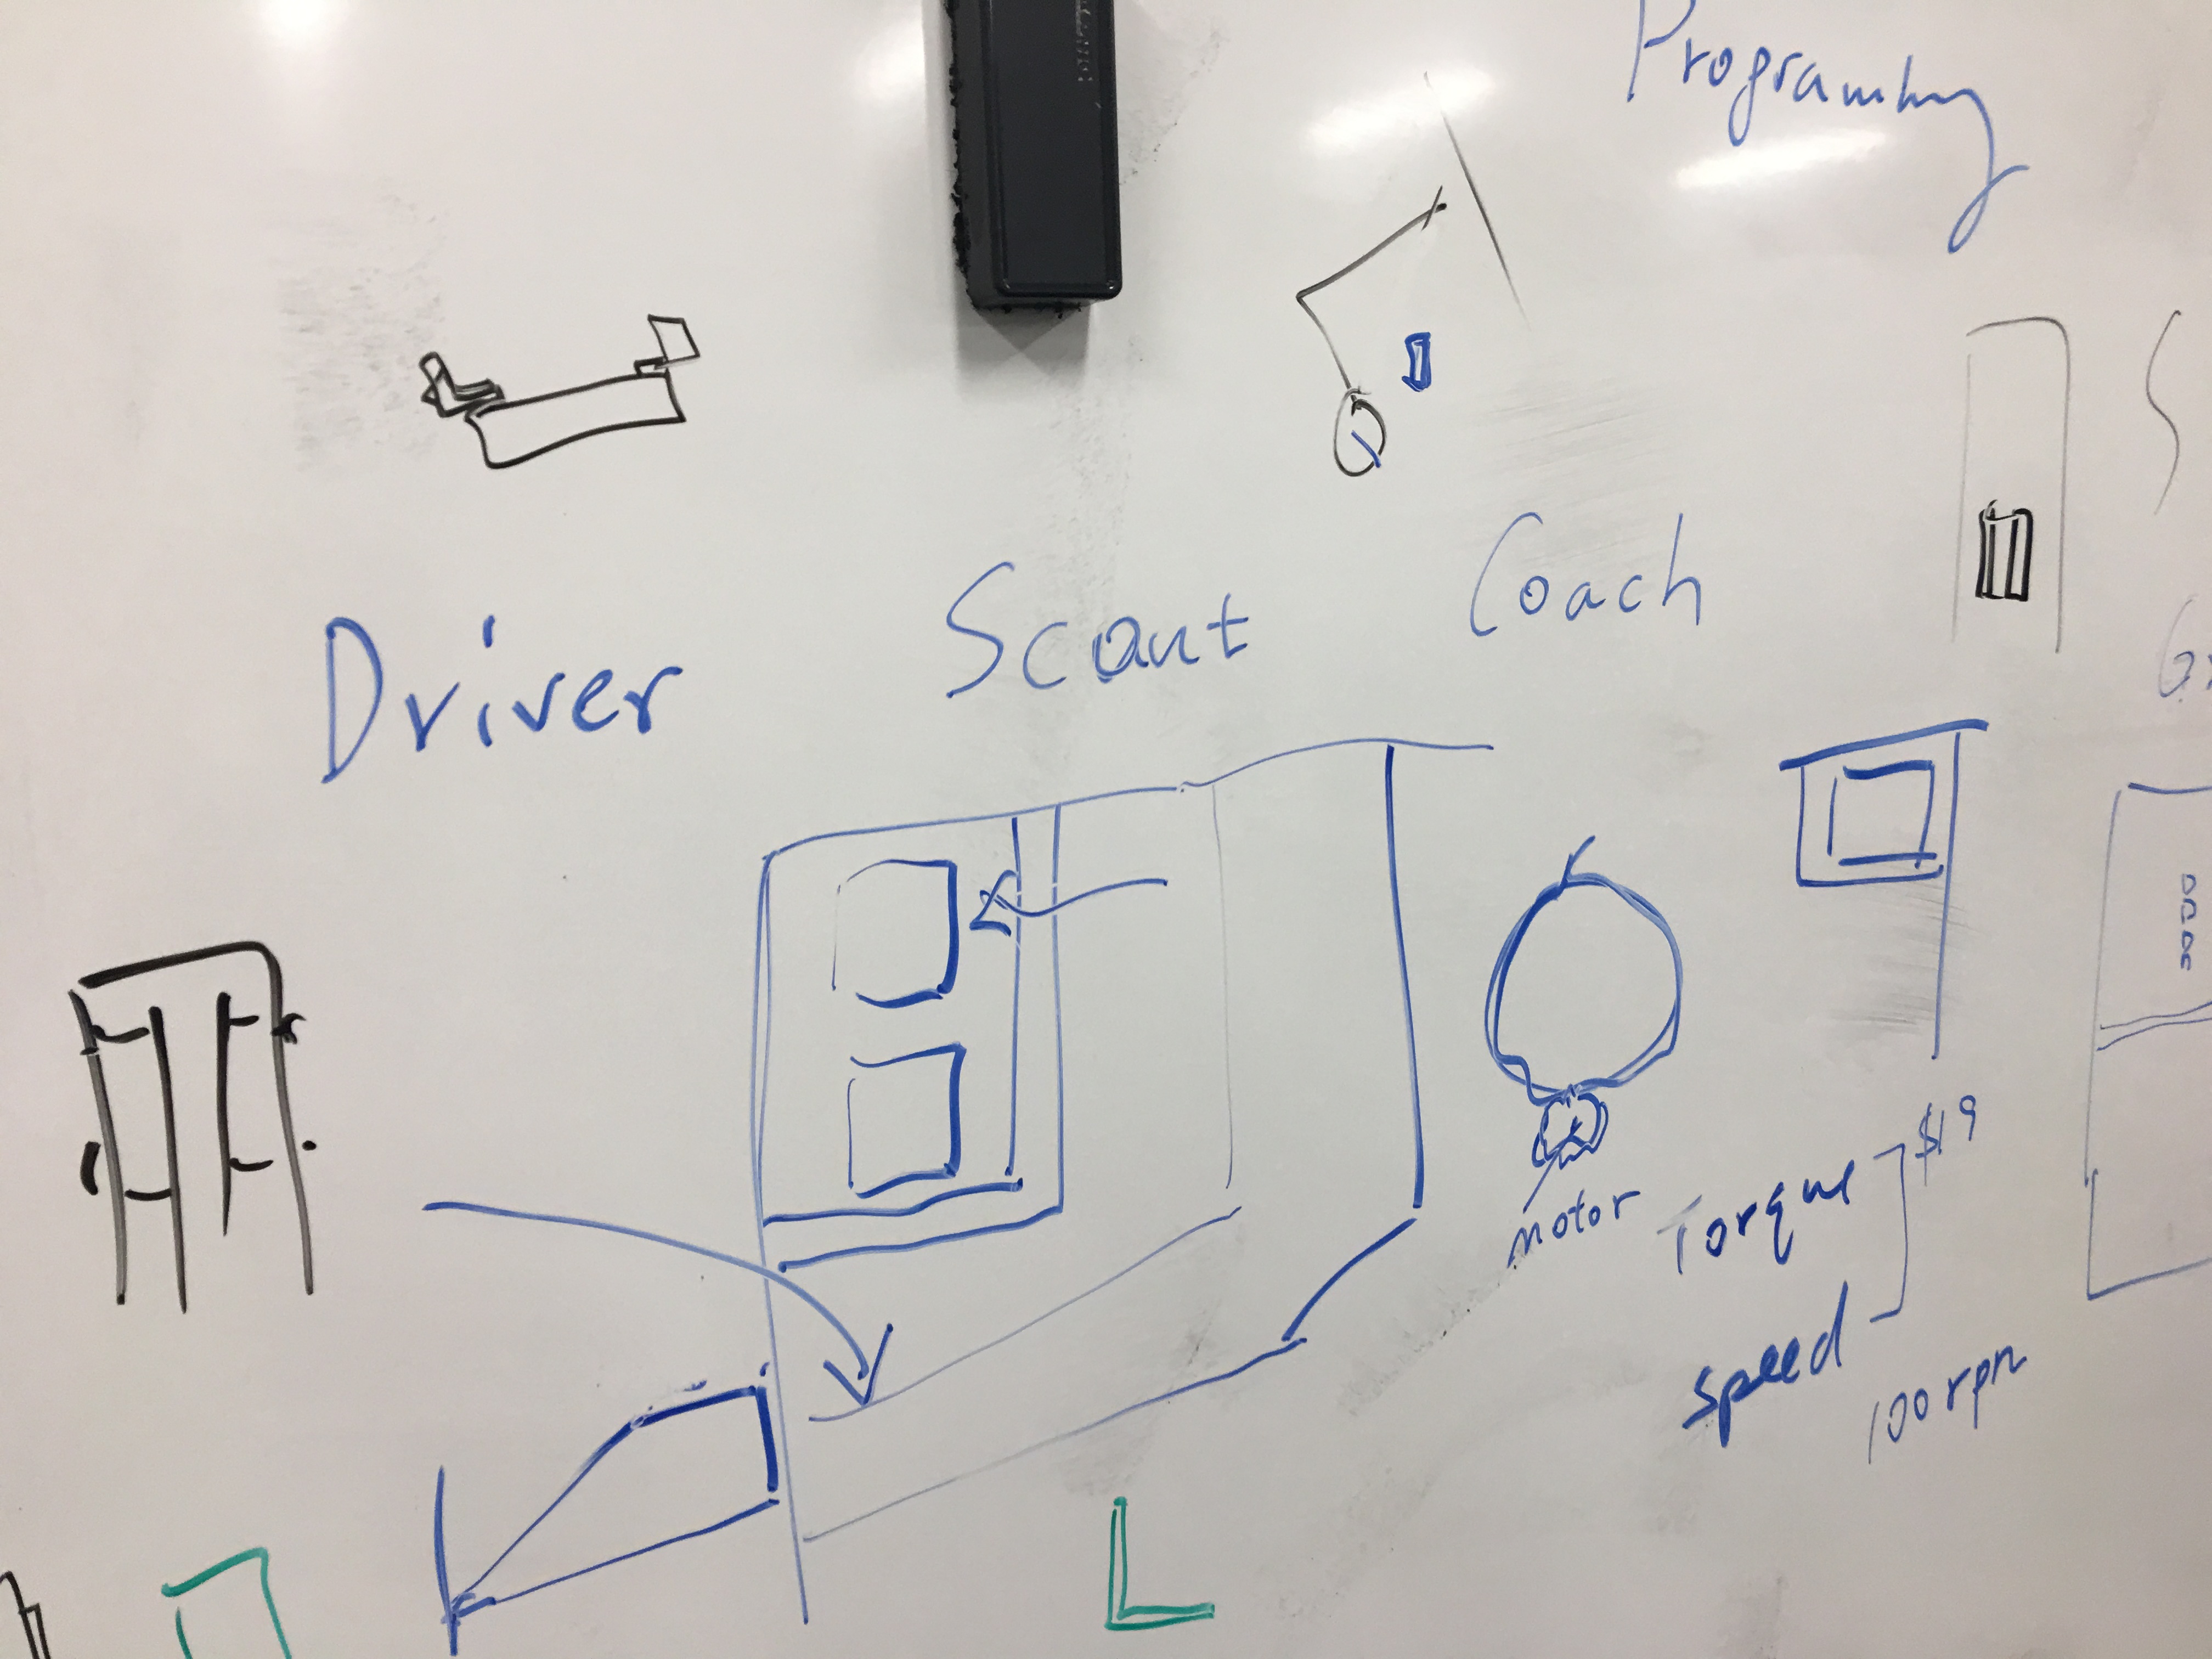 Programing
Driver
Scout
Coach
$19
motor
Torque
speed
100 rpm